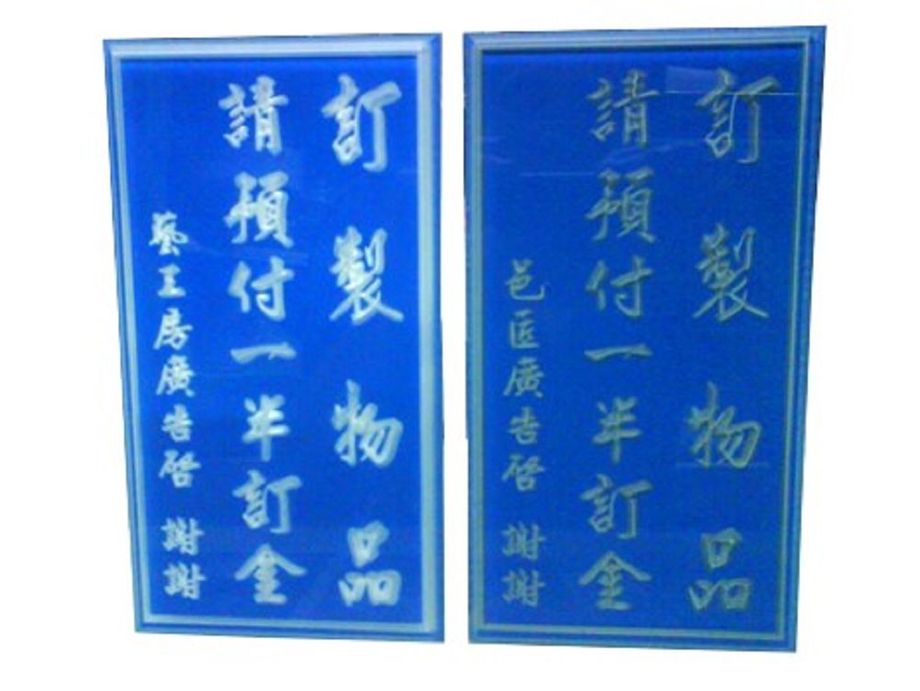 訂製物品
請預付一半訂金
藝工房廣告啓 謝謝
訂製物品
請預付一半訂金
邑匠廣告啓 謝謝